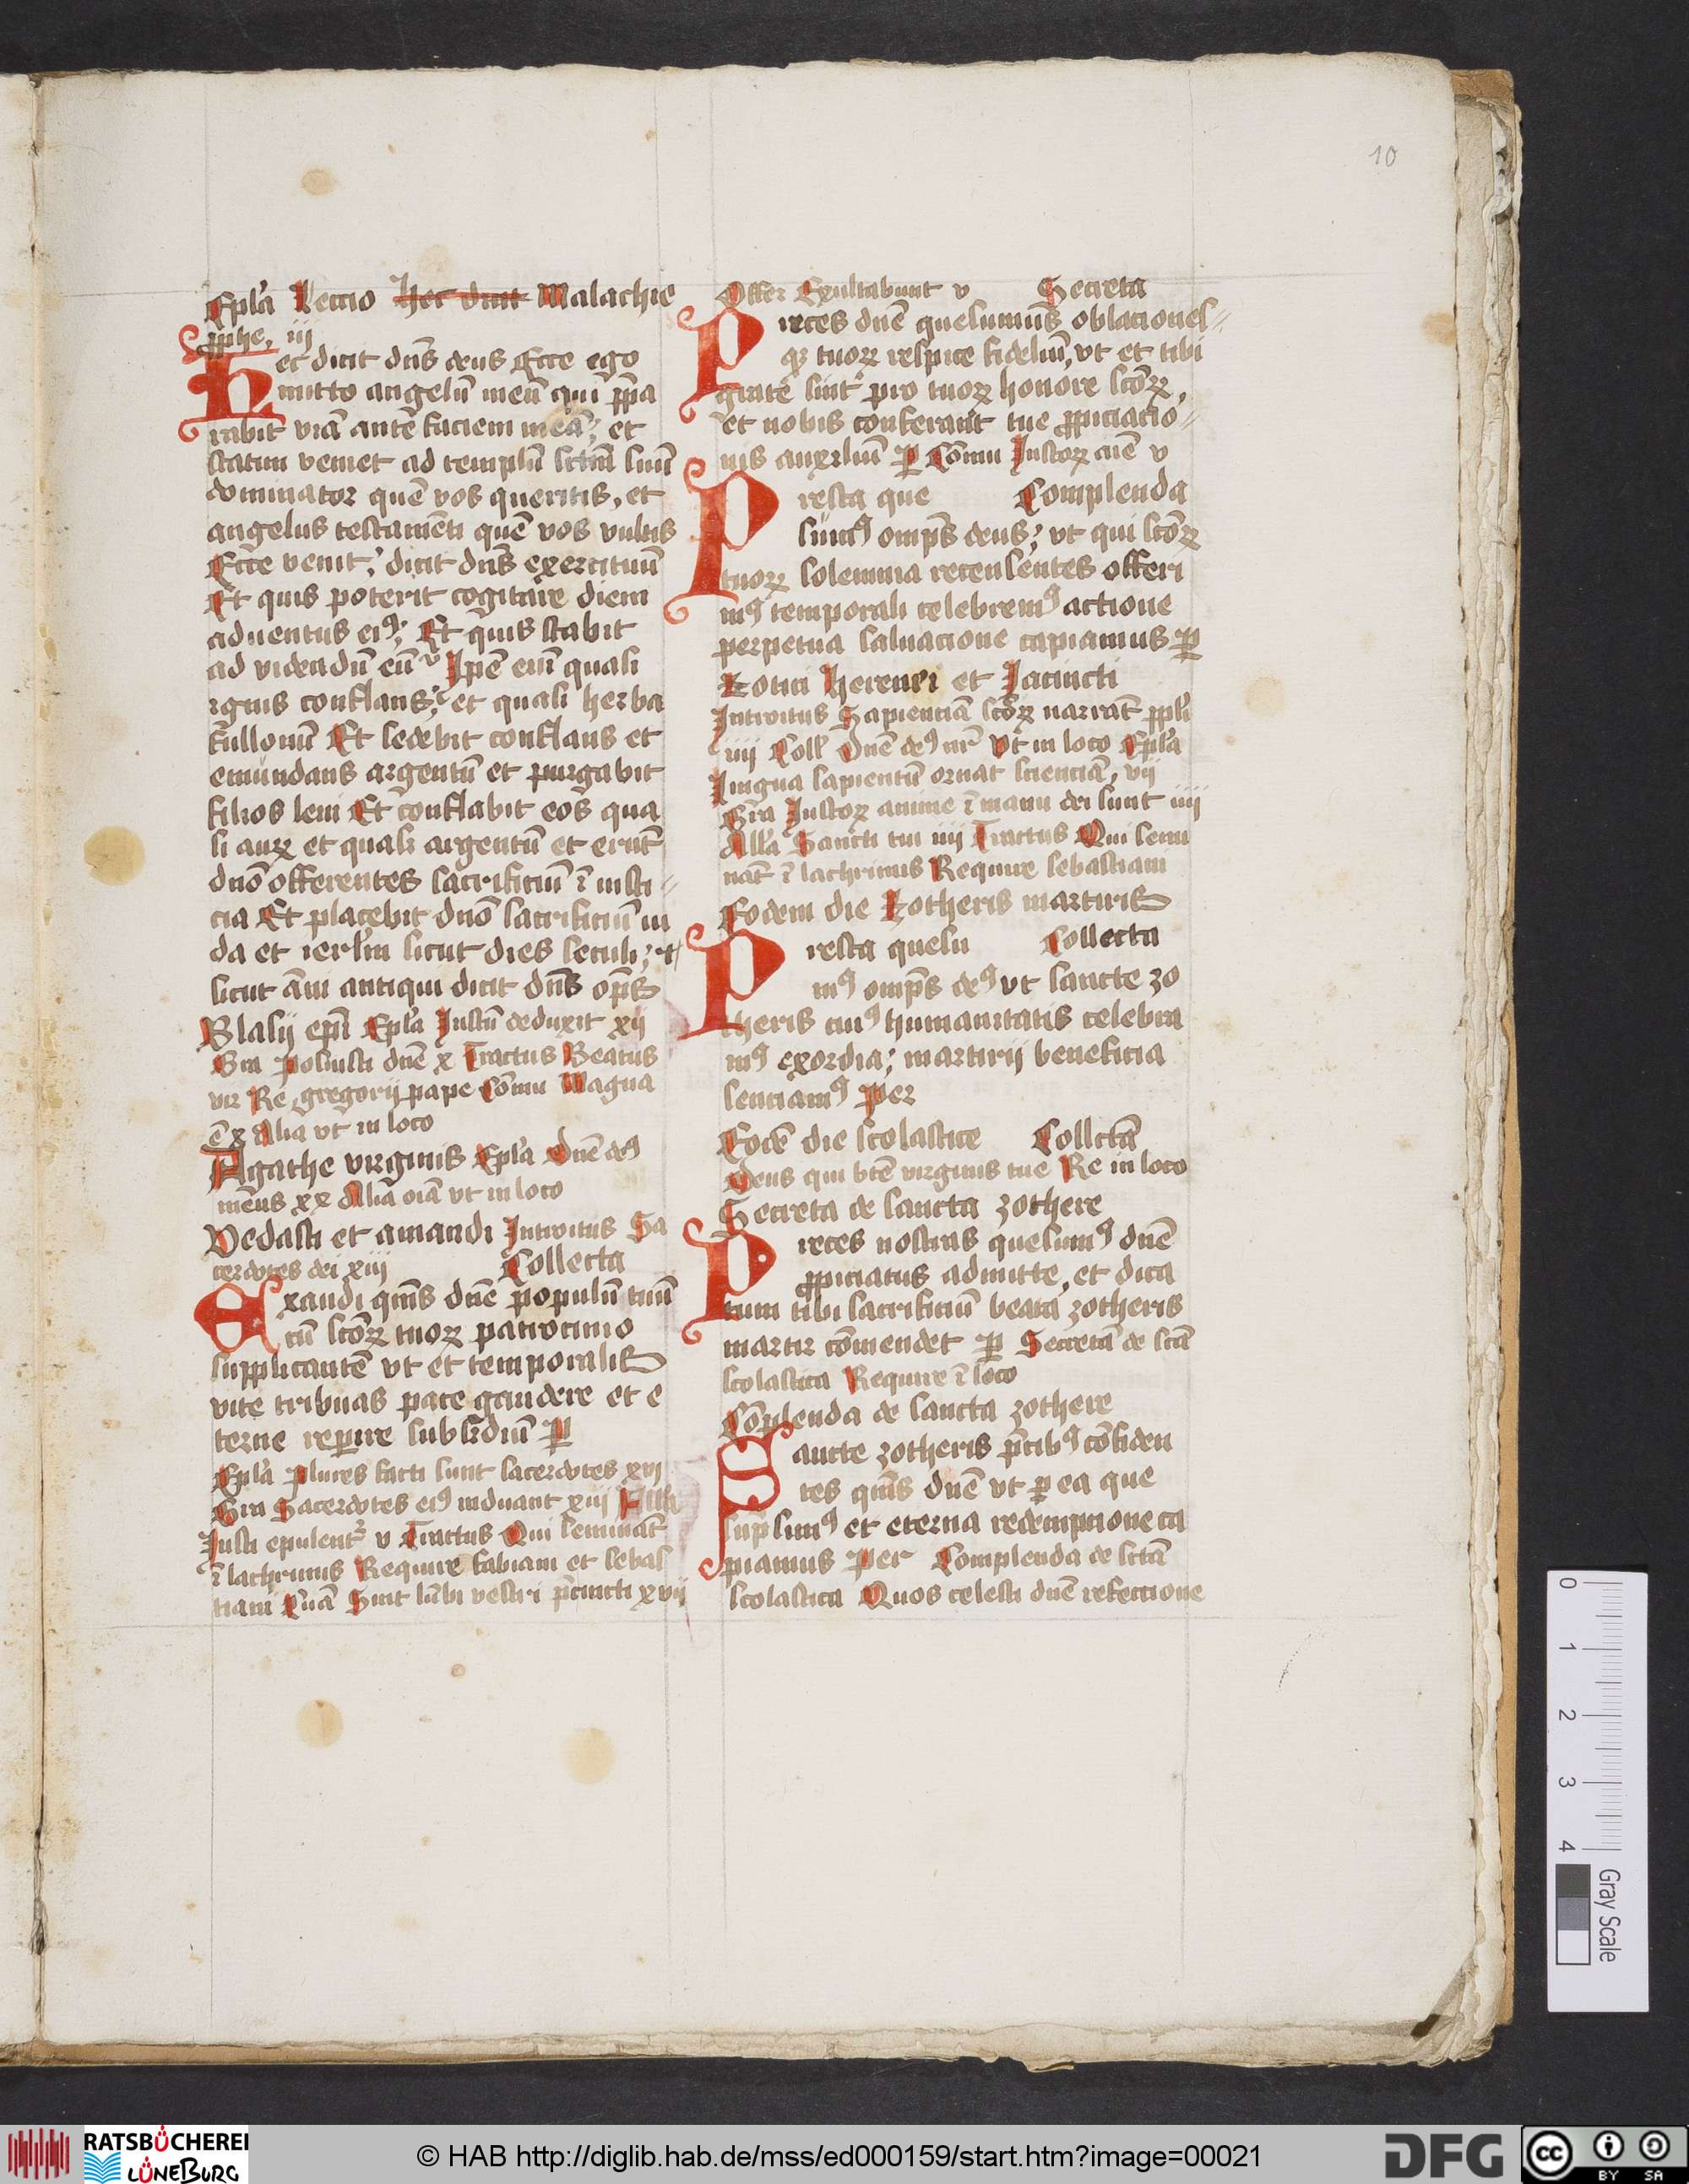 10
Epl'a Lectio Hec dicit Malachie
ꝓphe, iij
Hec dicit dn̄s deus Ecce ego
mitto angelū meū qui p̄pa
rabit viā ante faciem meā; et
statim veniet ad templū sctm̄ suū
dominator quē vos queritis, et
angelus testamēti quē vos vultis
Ecce venit; dicit dn̄s exercituū
Et quis poterit cogitare diem
aduentus eiꝰ; Et quis stabit
ad videndū eū Ip̄e em̄ quasi
ignis conflans; et quasi herba
fullonū Et sedebit conflans et
emundans argentū et purgabit
filios leui Et conflabit eos qua
si auꝝ et quasi argentū et erūt
dn̄o offerentes sacrificiū ī iusti
cia Et placebit dn̄o sacrificiū iu
da et ierl'm sicut dies seculi; et
sicut āni antiqui dicit dn̄s op̄s
Blasij ep̄i Epl'a Iustū deduxit xij
Gra Posuisti dn̄e x Tractus Beatus
vir Re gregorij pape Cōmu Magna
ē x Alia vt in loco
Agathe virginis Epl'a Dn̄e deꝰ
meus xx Alia oīa vt in loco
Vedasti et amandi Introitus Sa
cerdotes dei xiij Collecta
Exaudi qm̄s dn̄e populū tuū
cū sctōꝝ tuoꝝ patrocinio
supplicantē vt et temporalis
vite tribuas pace gaudere et e
terne reperire subsidiū ꝑ
Epl'a Plures facti sunt sacerdotes xvj
Gra Sacerdotes eiꝰ induant xiij All'a
Iusti epulent᷑ v Tractus Qui semināt
ī lachrimis Require fabiani et sebas
tiani Sint lūbi vestri p̄cincti xvij
Offer Exultabunt v Secreta
Preces dn̄e quesumus oblationes
qꝫ tuoꝝ respice fideliū, vt et tibi
grate sint pro tuoꝝ honore sctōꝝ,
et nobis conferant tue ꝓpiciacio
nis auxiliū ꝑ Cōmu Iustoꝝ aīe v
Presta que Complenda
sumꝰ omp̄s deus; vt qui sctōꝝ
tuoꝝ solemnia recensentes offeri
mꝰ temporali celebremꝰ actione
perpetua saluacione capiamus ꝑ
Zotici Herenei et Iacincti
Introitus Sapientiā sctōꝝ narrāt ꝓpl'i
iiij Coll' Dn̄e deꝰ nr̄ Vt in loco Epl'a
Lingua sapientū ornat scienciā, vij
Gra Iustoꝝ anime ī manu dei sunt iiij
All'a Sancti tui iiij Tractus Qui semi
nāt ī lachrimis Require sebastiani
Eodem die Zotheris martiris
Presta quesu Collecta
mꝰ omp̄s deꝰ vt sancte zo
theris cuiꝰ humanitatis celebra
mꝰ exordia; martirij beneficia
senciamꝰ Per
Eodē die scolastice Collctā
Deus qui btē virginis tue Re in loco
Secreta de sancta zothere
Preces nostras quesumꝰ dn̄e
ꝓpiciatus admitte, et dica
tum tibi sacrificiū beata zotheris
martir cōmendet ꝑ Secretā de sctā
scolastica Require ī loco
Cōplenda de sancta zothere
Sancte zotheris p̄cibꝰ cōfiden
tes qm̄s dn̄e vt ꝑ ea que
supsimꝰ et eterna redempcione ca
piamus Per Complenda de sctā
scolastica Quos celesti dn̄e refectione
0 1 2 3 4
Gray Scale
RATSBÜCHEREI
LÜNEBURG
© HAB http://diglib.hab.de/mss/ed000159/start.htm?image=00021
DFG
cc BY SA